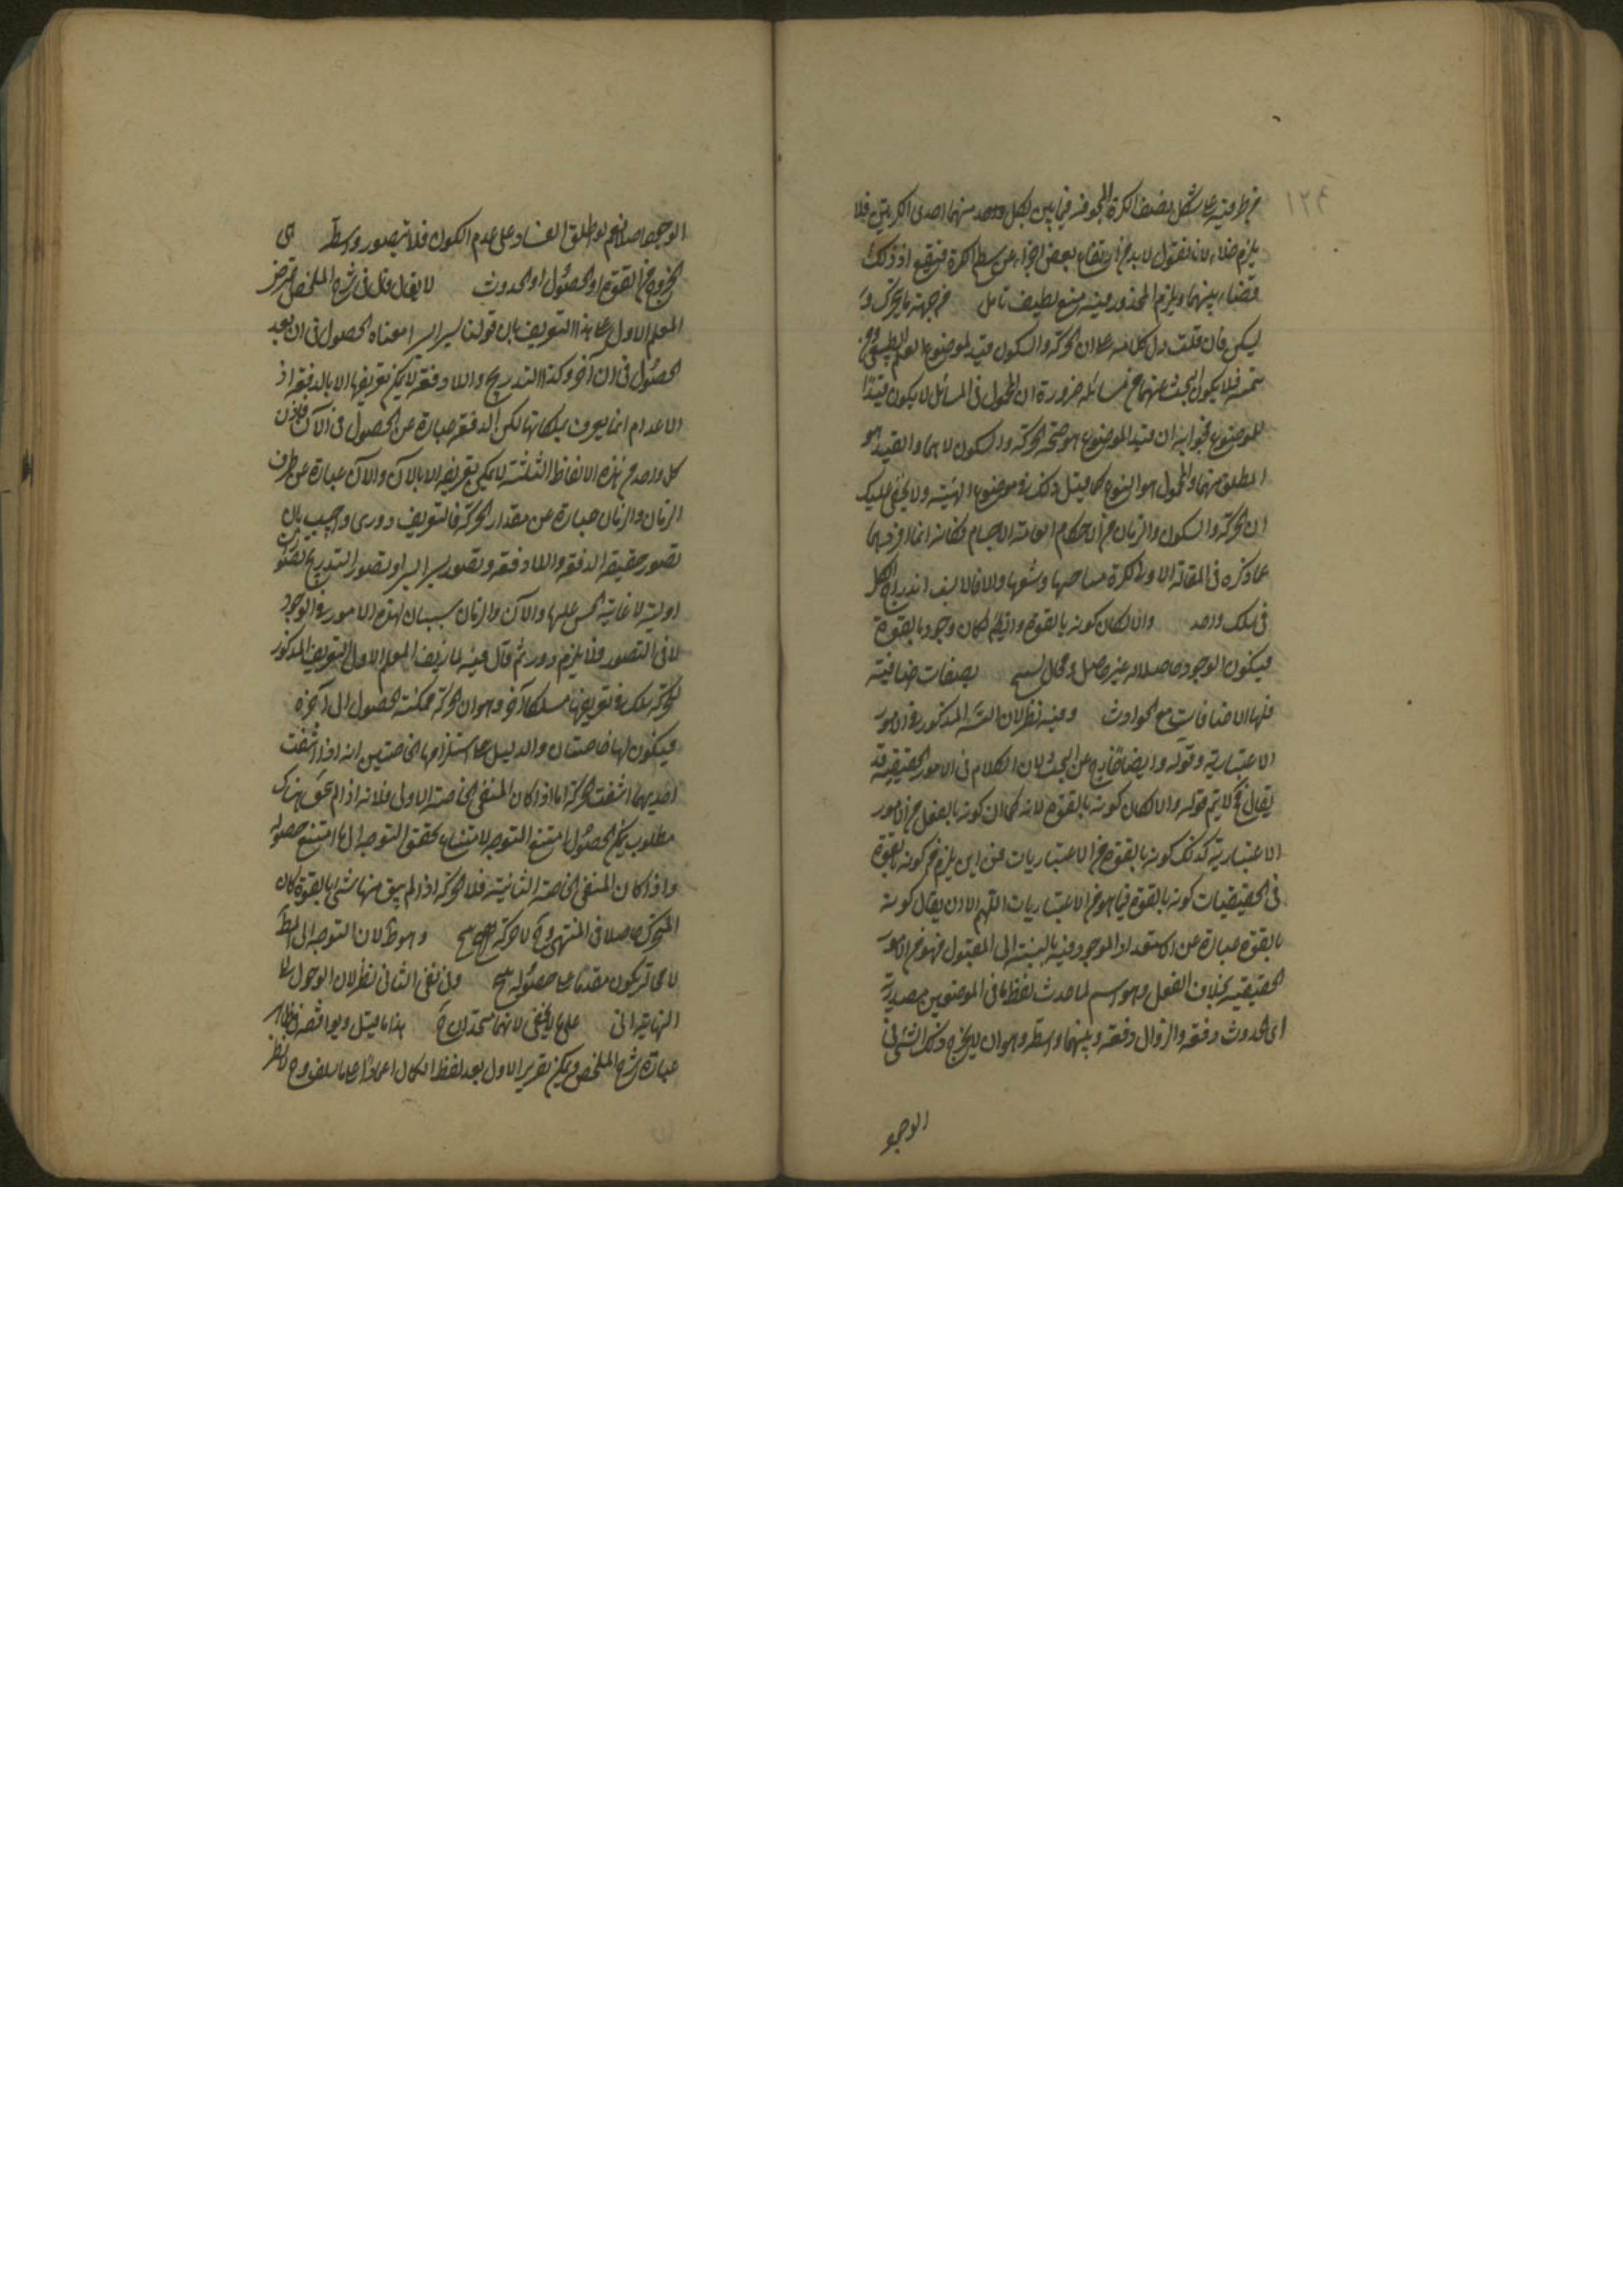 ١٢٤
من طرفيه على شكل نصف الكرة المجوفة فيما بين لكل واحد منهما احدى الكريتين فلا
يلزم خلاء لانا نقول لا بد من ارتفاع بعض اجزاء عن سطح الكرة فيقع اذ ذلك
فضاء بينهما ويلزم المحذور وفيه منع لطيف تامل من جهة ما يتحرك و
يسكن فان قلت دل كلامه على ان الحركة والسكون قيد لموضوع العلم الطبيعى ومن
تتمته فلا يكون البحث عنهما من مسائله ضرورة ان المحمول فى المسائل لا يكون قيدا
للموضوع فجوابه ان قيد الموضوع هو صحة الحركة والسكون لا هما او القيد هو
المطلق منهما والمحمول هو النوع كما قيل ذلك فى موضوع الهيئة ولا يخفى عليك
ان الحركة والسكون والزمان من الاحكام العامة للاجسام فكانه انما افردهما
عما ذكره فى المقالة الاولى لكثرة مباحثها وشعبها والا فالانسب اندراج الكل
فى سلك واحد والا لكان كونه بالقوة وايضا لكان وجوده بالقوة
فيكون الوجود حاصلا له غير حاصل ومحال لسيح بصفات اضافية
فلها الاضافات مع الحوادث وفيه نظر لان الشه المذكور فى الامور
الاعتبارية وقوله وايضا خارج عن البحث لان الكلام فى الامور الحقيقية قد
يقال ح لا يتم قوله والا لكان كونه بالقوة لانه كما ان كونه بالفعل من الامور
الاعتبارية كذلك كونه بالقوة من الاعتباريات فمن اين يلزم من كونه بالقوة
فى الحقيقيات كونه بالقوة فيما هو من الاعتباريات اللهم الا ان يقال كونه
بالقوة عبارة عن استعداد الموجود فيه بالنسبة الى المقبول فهو من الامور
الحقيقية بخلاف الفعل وهو اسم لما حدث لفظ ما فى الموضعين مصدرية
اى الحدوث دفعة والزوال دفعة وبينهما واسطة وهو ان لا يخرج ذلك الشئ فى
الوجو
الوجود اصلا نعم لو اطلق الفساد على عدم الكون فلا يتصور واسطة هى
الخروج من القوة او الحصول او الحدوث لا يقال قال فى شرح الملخص تعرض
المعلم الاول على هذا التعريف بان قولنا يسيرا يسيرا معناه الحصول فى ان بعد
الحصول فى ان آخر وكذا التدريج واللا دفعة لا يمكن تعريفها الا بالدفعة اذ
الاعدام انما يعرف بملكاتها لكن الدفعة عبارة عن الحصول فى الآن فاذن
كل واحد من هذه الالفاظ الثلثة لا يمكن تعريفه الا بالآن والآن عبارة عن طرف
الزمان والزمان عبارة عن مقدار الحركة فالتعريف دورى واجيب بان
تصور حقيقة الدفعة واللا دفعة وتصور يسيرا يسيرا وتصور التدريج تصورات
اولية لاعانة الحس عليها والآن والزمان سببان لهذه الامور فى الوجود
لا فى التصور فلا يلزم دور ثم قال فيه لما زيف المعلم الاول التعريف المذكور
للحركة سلك فى تعريفها مسلكا آخر وهو ان الحركة ممكنة الحصول الى آخره
فيكون لها خاصتان والدليل على استلزامها الخاصتين انه اذا انتفت
احديهما انتفت الحركة اما اذا كان المنتفى الخاصة الاولى فلانه اذا لم يتحقق هناك
مطلوب يمكن الحصول امتنع التوجه لامتناع تحقق التوجه الى ما امتنع حصوله
واذا كان المنتفى الخاصة الثانية فلا حركة اذا لم يبق منها شئ بالقوة كان
المتحرك حاصلا فى المنتهى وح لا حركة وهو ظ لان التوجه الى الط
لا محالة يكون مقدما على حصوله وفى نفى الثانى نظر لان الوصول لما
النهاية انى على ما لا يخفى لانهما متحدان ح هذا ما قيل ويوافقه ظاهر
عبارة شرح الملخص ويمكن تقرير الاول بعد لفظ الكمال اعتمادا على ما سلف وح لا نظر